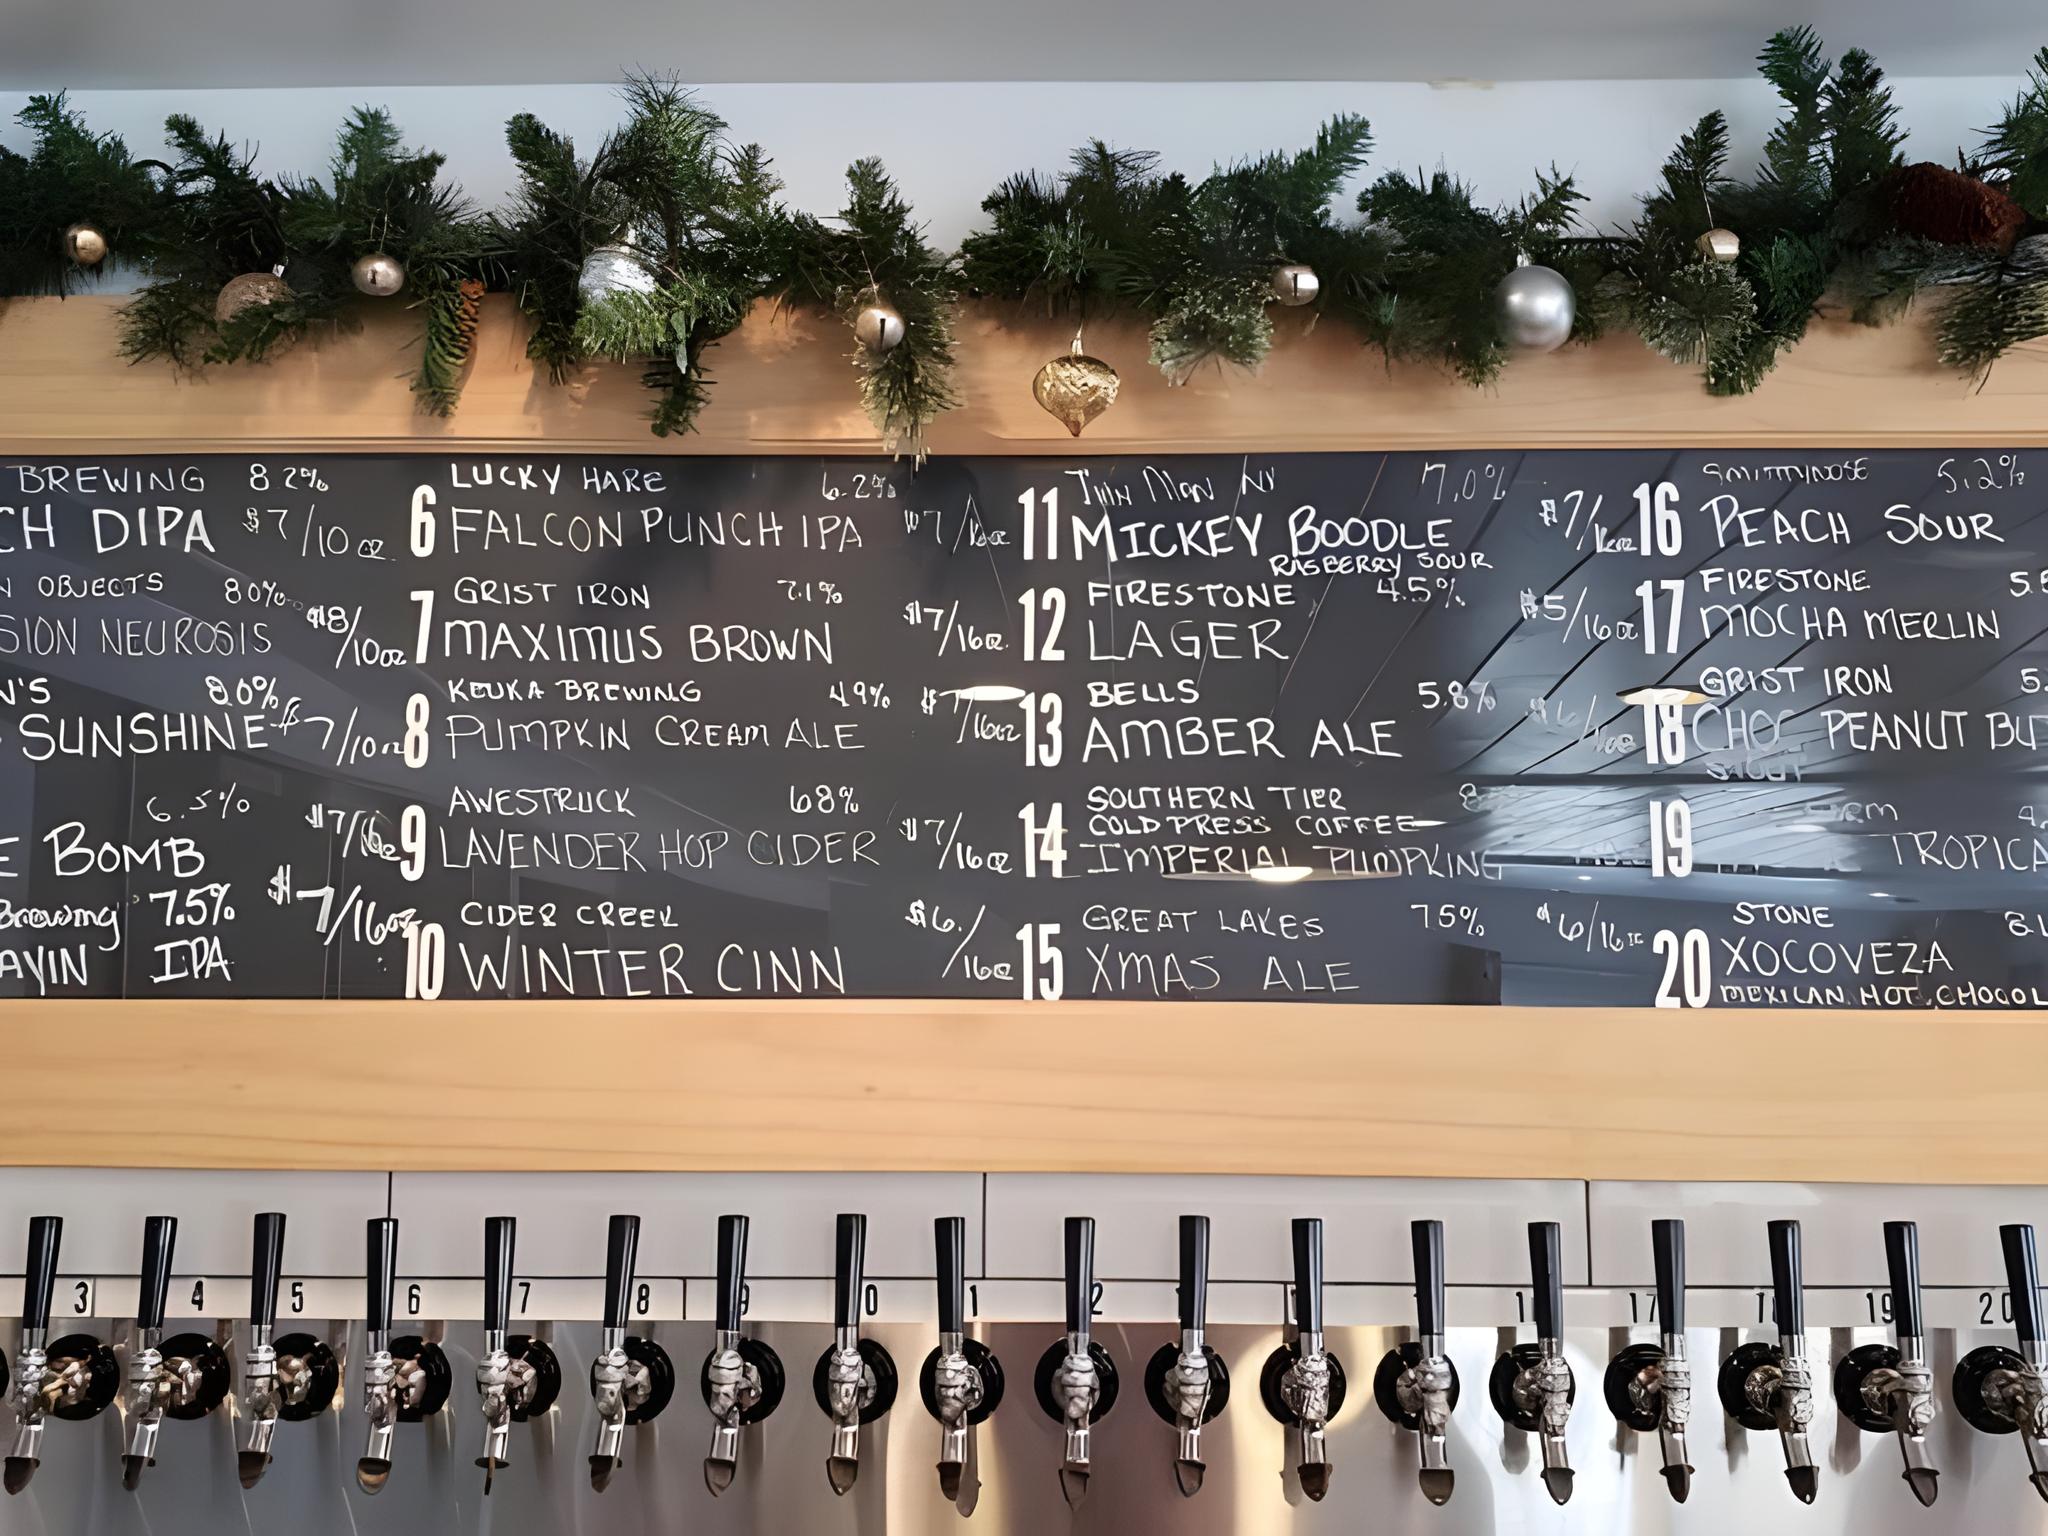 BREWING 8.2%
CH DIPA $7/10oz
OBJECTS 80%
SION NEUROSIS $8/10oz
N'S 80%
SUNSHINE $7/10
6.5%
E BOMB $7/16oz
Brewing 7.5%
AYIN IPA $7/16oz
6 LUCKY HARE 6.2%
FALCON PUNCH IPA $7/16oz
7 GRIST IRON 7.1%
MAXIMUS BROWN $7/16oz
8 KEUKA BREWING 49%
PUMPKIN CREAM ALE $7/16oz
9 AWESTRUCK 68%
LAVENDER HOP CIDER $7/16oz
10 CIDER CREEK
WINTER CINN $6./16oz
11 Twin Man NY 7.0%
MICKEY BOODLE $7/16oz
RASBERRY SOUR
12 FIRESTONE 4.5%
LAGER $5/16oz
13 BELLS 5.8%
AMBER ALE
14 SOUTHERN TIER 8
COLD PRESS COFFEE
IMPERIAL PUMPKING
15 GREAT LAKES 75%
XMAS ALE $6/16
16 SMITTYNOSE 5.2%
PEACH SOUR
17 FIRESTONE 5.
MOCHA MERLIN
18 GRIST IRON 5.
CHOC PEANUT BUT
STOUT
19
TROPICA
20 STONE
XOCOVEZA
MEXICAN HOT CHOCOL
3 4 5 6 7 8 9 0 1 2 1 17 1 19 20